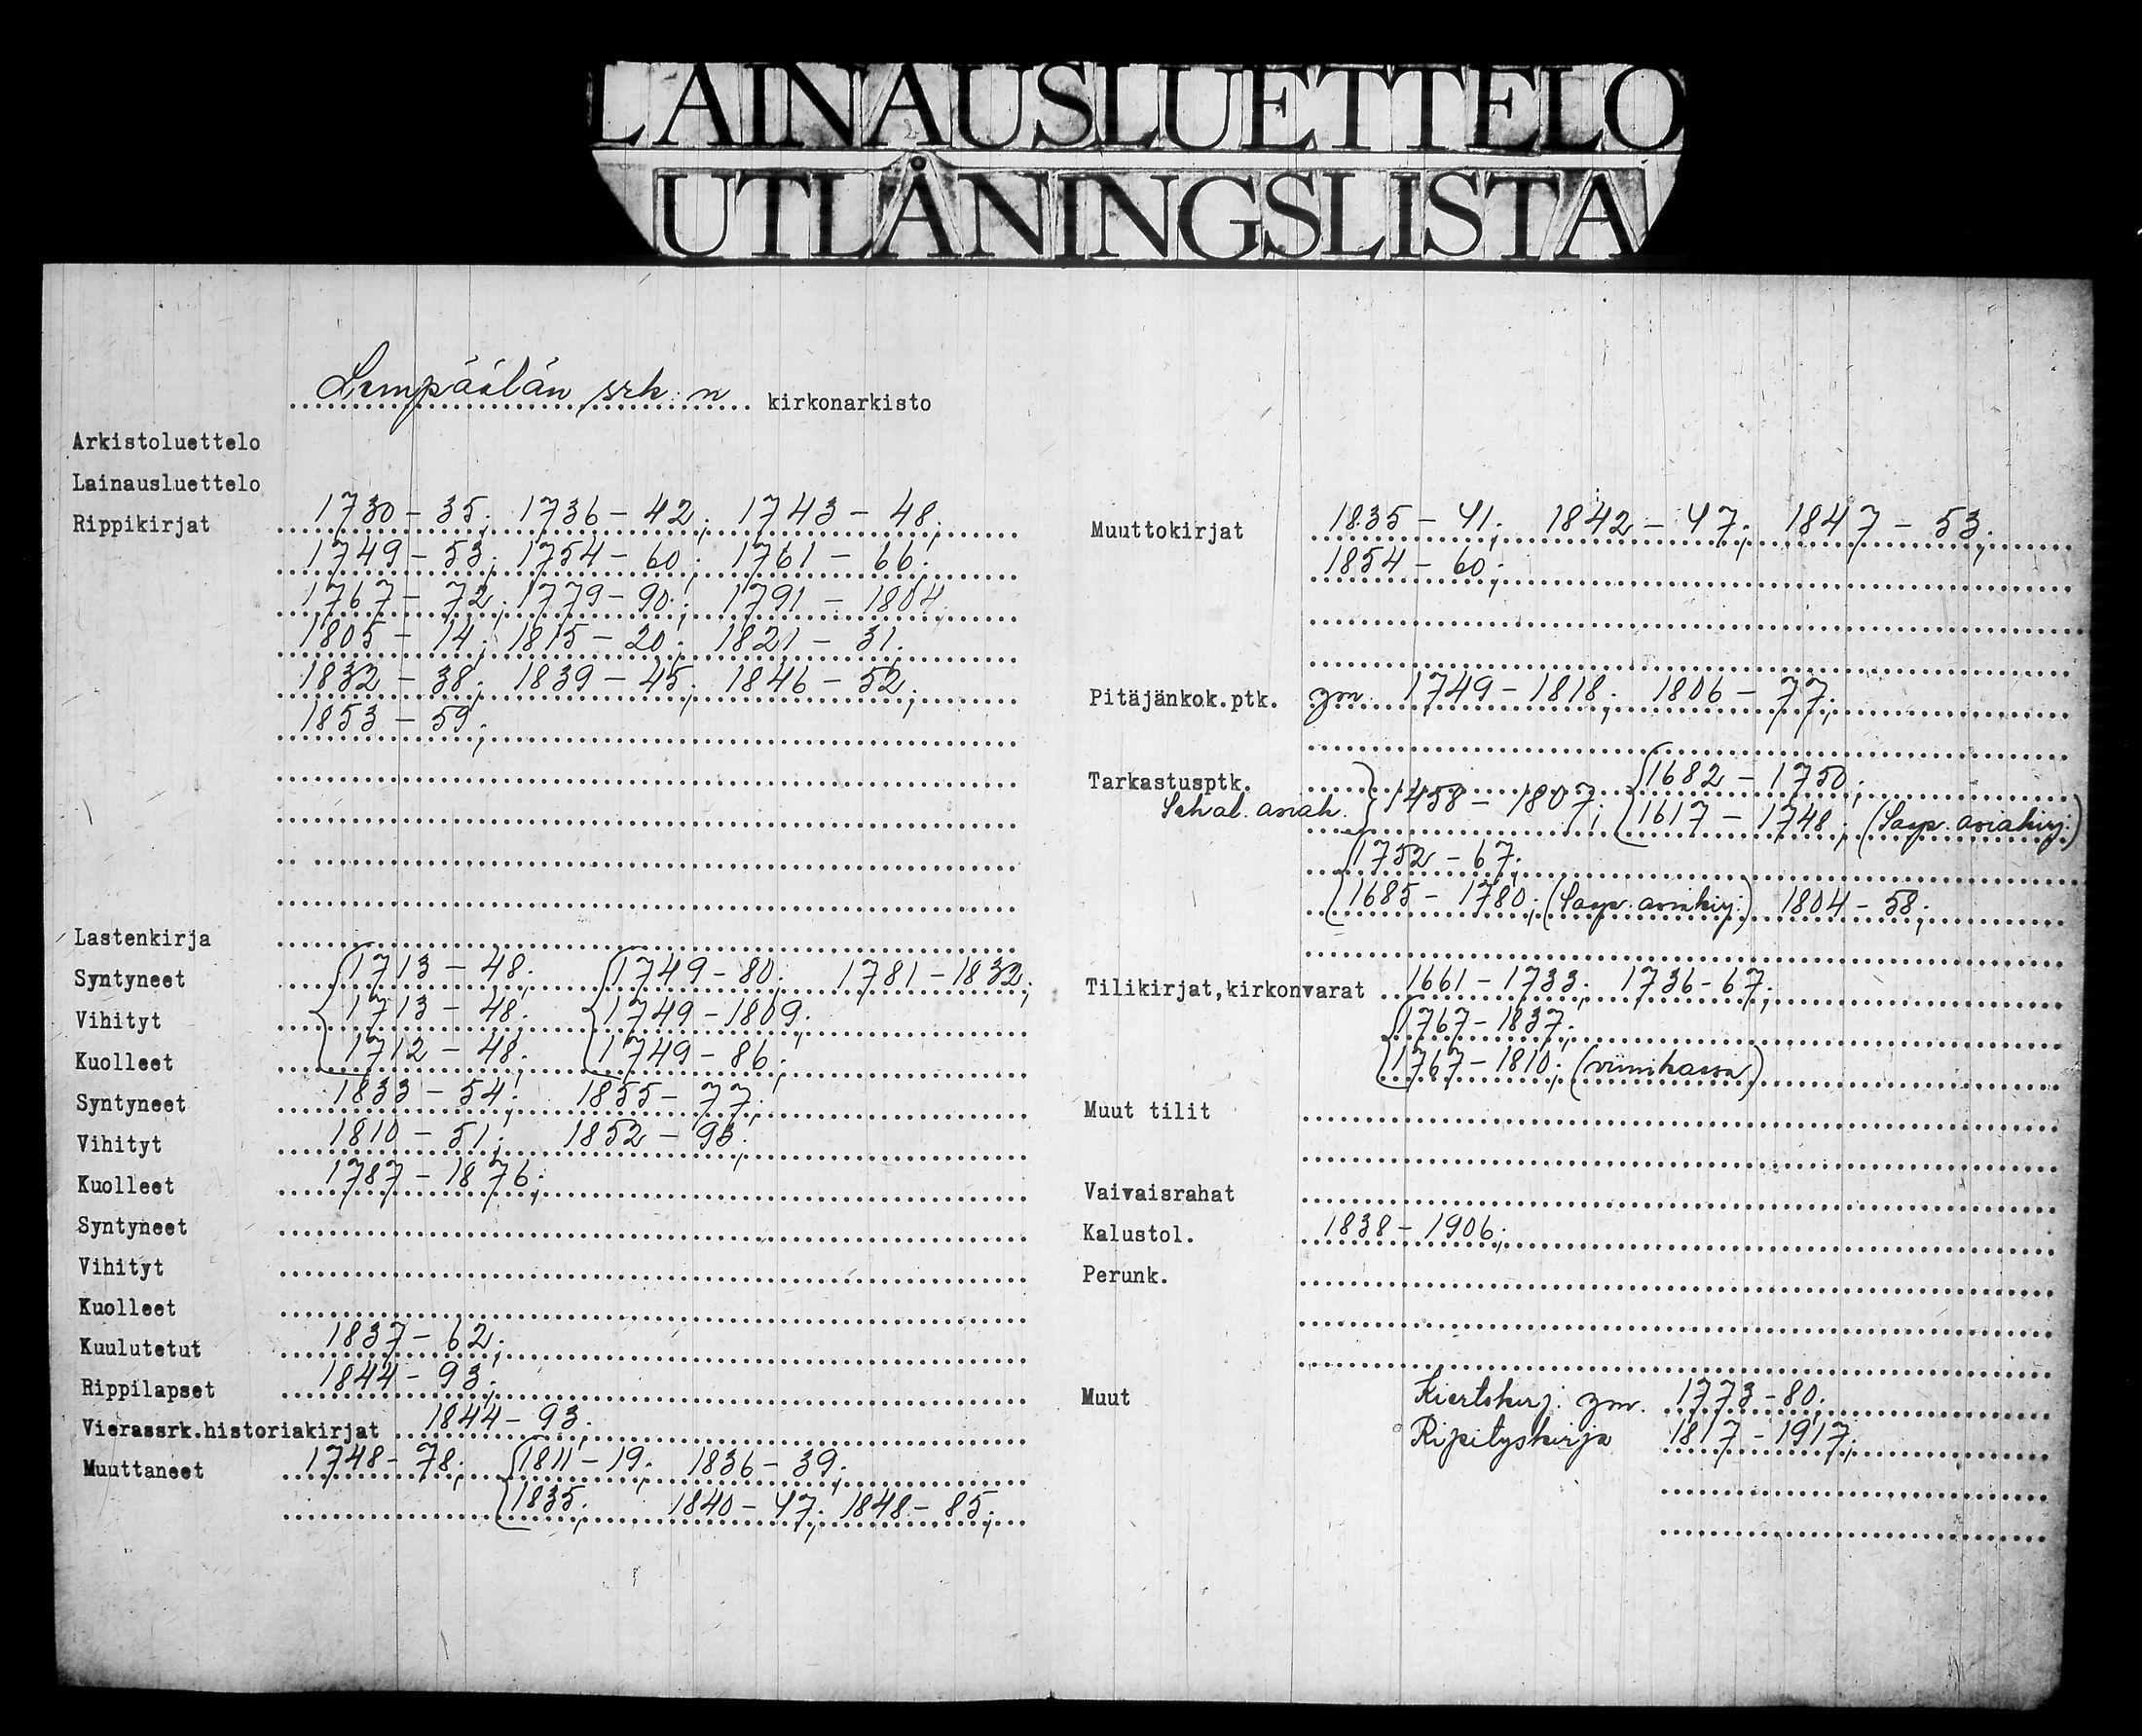 LAINAUSLUETTELO
UTLÅNINGSLISTA
Lempäälän srk:n kirkonarkisto
Arkistoluettelo
Lainausluettelo
Rippikirjat 1730 - 35; 1736 - 42; 1743 - 48;
1749 - 53; 1754 - 60; 1761 - 66;
1767 - 72; 1779 - 90; 1791 - 1804
1805 - 14; 1815 - 20; 1821 - 31;
1832 - 38; 1839 - 45; 1846 - 52;
1853 - 59;
Lastenkirja
Syntyneet 1713 - 48; 1749 - 80; 1781 - 1832;
Vihityt 1713 - 48; 1749 - 1809;
Kuolleet 1712 - 48; 1749 - 86;
Syntyneet 1833 - 54; 1855 - 77;
Vihityt 1810 - 51; 1852 - 93;
Kuolleet 1787 - 1876;
Syntyneet
Vihityt
Kuolleet
Kuulutetut 1837 - 62;
Rippilapset 1844 - 93;
Vierassrk.historiakirjat 1844 - 93;
Muuttaneet 1748 - 78; 1811 - 19; 1836 - 39;
1835; 1840 - 47; 1848 - 85;
Muuttokirjat 1835 - 41; 1842 - 47; 1847 - 53;
1854 - 60;
Pitäjänkok.ptk. ym. 1749 - 1818; 1806 - 77;
Tarkastusptk. 1682 - 1750;
Sekal. asiak. 1458 - 1807; 1617 - 1748; (Saap. asiakirj.)
1752 - 67;
1685 - 1780; (Saap. asiakirj.) 1804 - 58;
Tilikirjat,kirkonvarat 1661 - 1733; 1736 - 67;
1767 - 1837;
1767 - 1810; (viinikassa)
Muut tilit
Vaivaisrahat
Kalustol. 1838 - 1906;
Perunk.
Muut Kiertokirj. ym. 1773 - 80;
Ripityskirja 1817 - 1917;